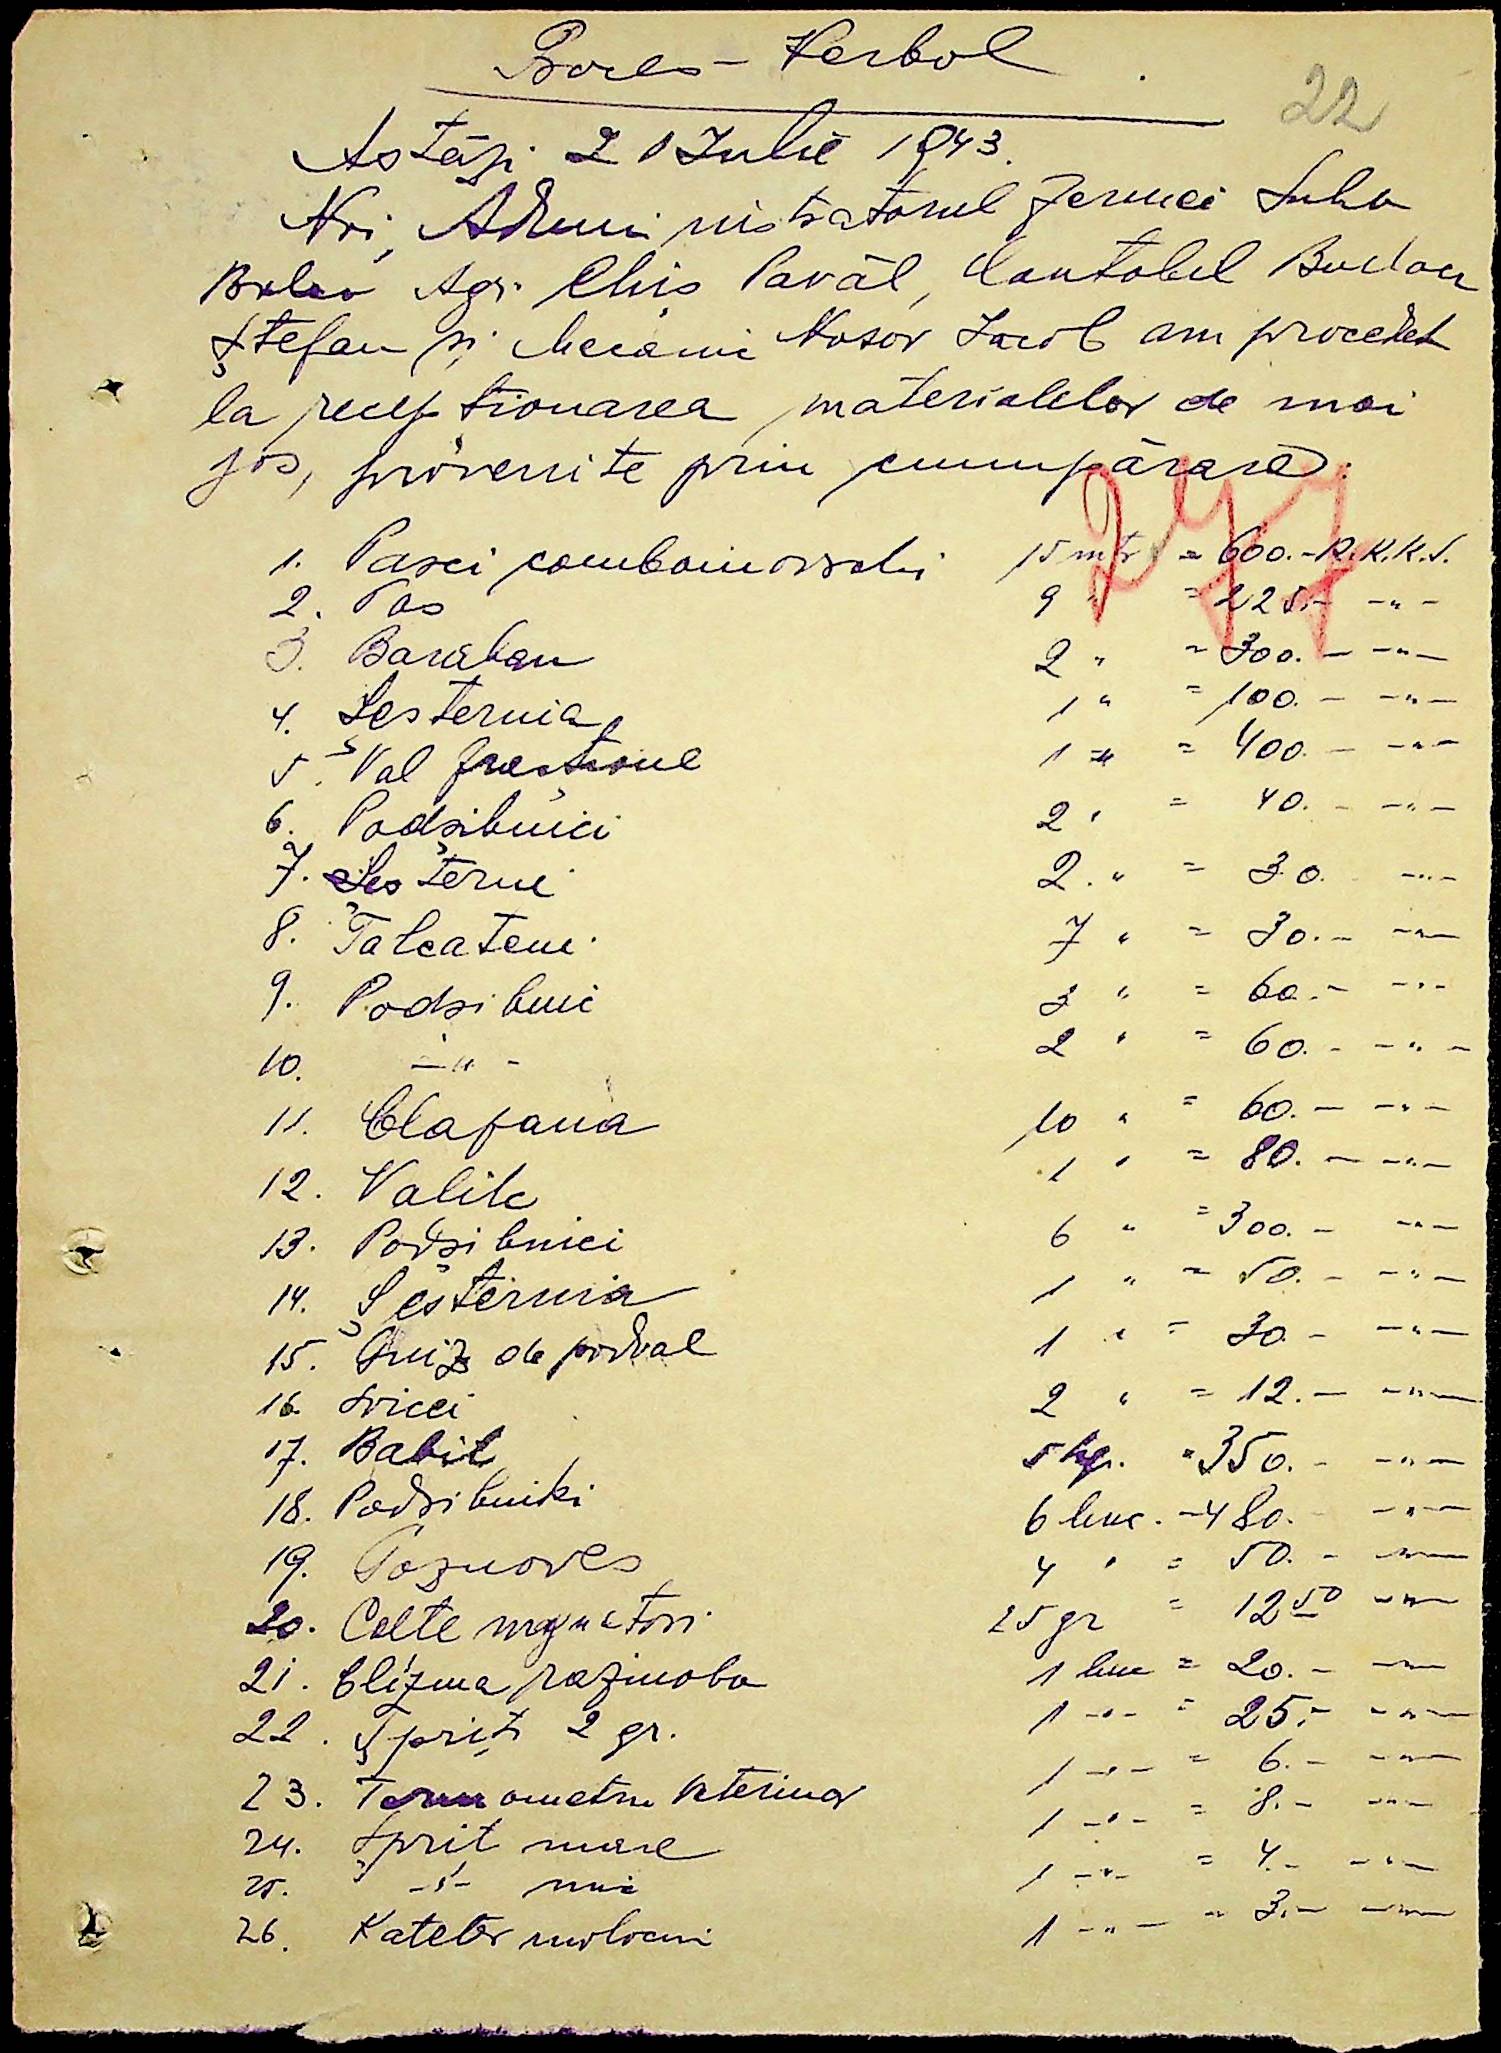 Proces-Verbal
22
Astăzi 21 Iulie 1943.
Noi, Administratorul fermei Suha
Balca Agr. Chis Pavăl, Contabil Budan
Ștefan și Mecanic Nosov Iacob am procedat
la recepționarea materialelor de mai
jos, provenite prin cumumpărare:
277
1. Pasci combainovschi 15 mtr = 600.- R.K.K.S.
2. Pas 9 " = 225.- -"-
3. Baraban 2 " = 300.- -"-
4. Șesternia 1 " = 100.- -"-
5. Val fracțione 1 " = 400.- -"-
6. Podșibnici 2 " = 40.- -"-
7. Șesterni 2. " = 30. -"-
8. Talcateni 7 " = 30.- -"-
9. Podsibni 3 " = 60.- -"-
10. -"- 2 " = 60.- -"-
11. Clapana 10 " = 60.- -"-
12. Valik 1 " = 80.- -"-
13. Podșibnici 6 " = 300.- -"-
14. Șesternia 1 " = 50.- -"-
15. de podval 1 " = 30.- -"-
16. Svicei 2 " = 12.- -"-
17. Babit 5 kgr. = 350.- -"-
18. Podșibniki 6 buc. = 480.- -"-
19. 4 " = 50.- -"-
20. Colte 25 gr = 12 50 -"-
21. Clizma razinoba 1 buc = 20.- -"-
22. Șpriț 2 gr. 1 -"- = 25.- -"-
23. Termometru Veterinar 1 -"- = 6.- -"-
24. Șprit mare 1 -"- = 8.- -"-
25. -"- mic 1 -"- = 4.- -"-
26. Kateter molocni 1 -"- = 3.- -"-